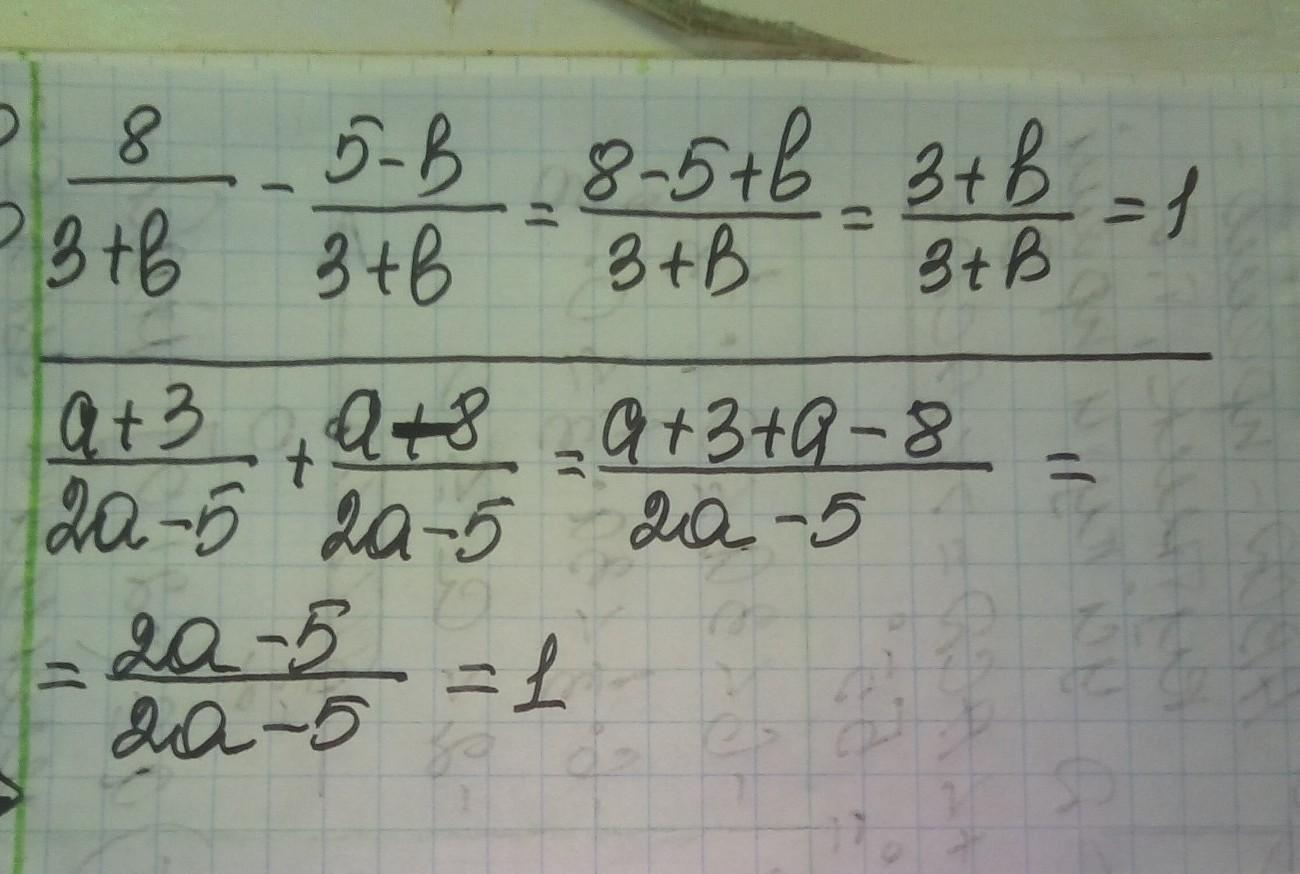 8/(3+в) - (5-в)/(3+в) = (8-5+в)/(3+в) = (3+в)/(3+в) = 1
(a+3)/(2a-5) + (a-8)/(2a-5) = (a+3+a-8)/(2a-5) =
= (2a-5)/(2a-5) = 1